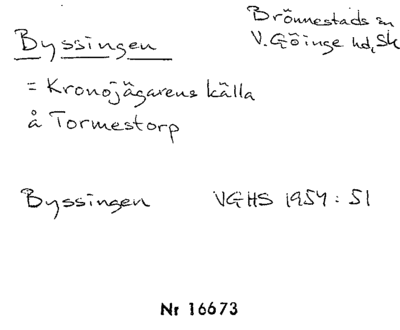 Byssingen
Brönnestads sn
V. Göinge hd, Sk
= Kronojägarens källa
å Tormestorp
Byssingen VGHS 1954 : 51
Nr 16673